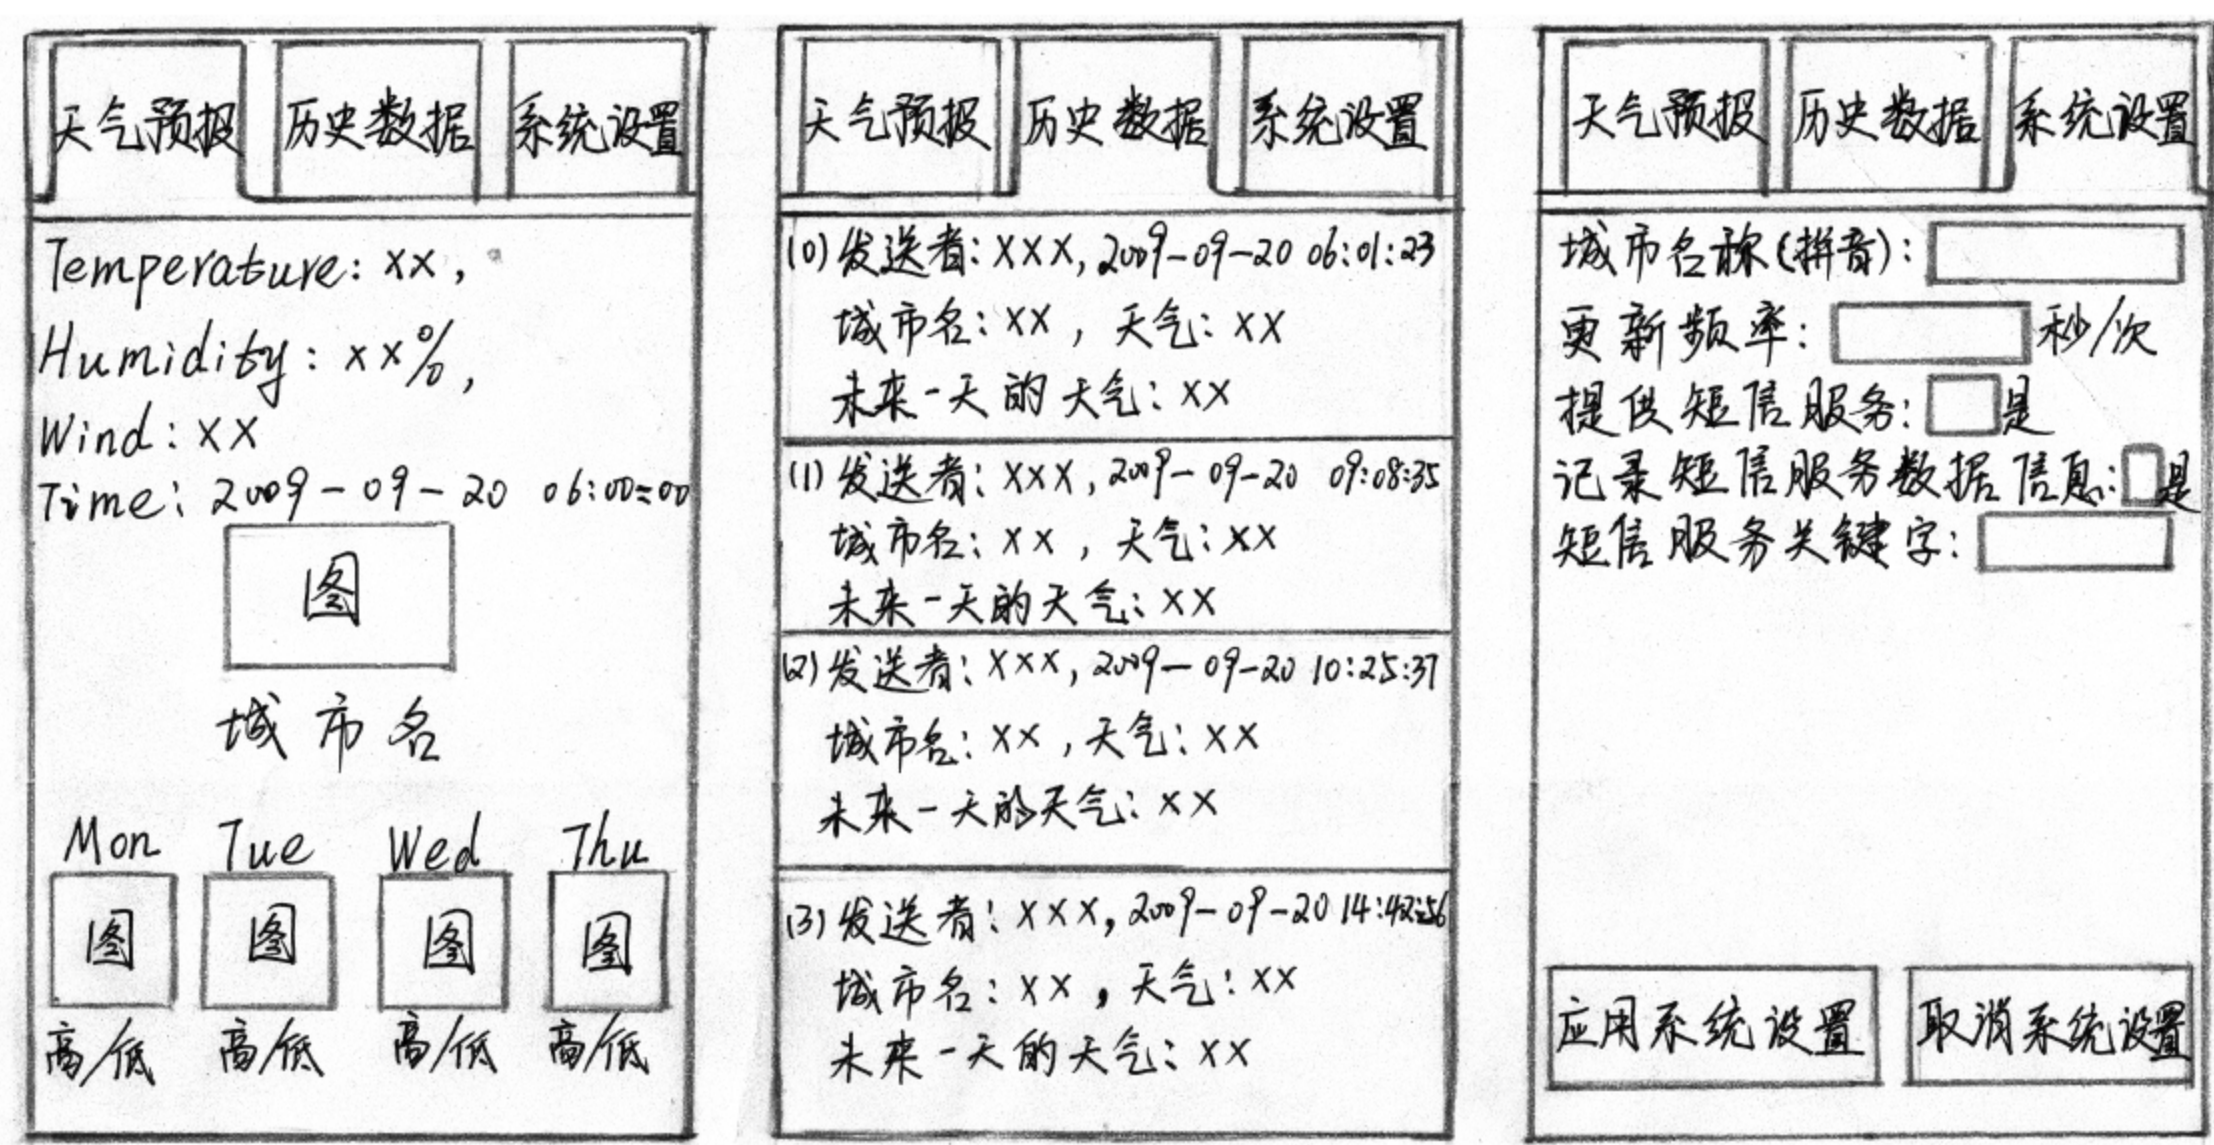 天气预报 历史数据 系统设置
Temperature: xx,
Humidity: xx%,
Wind: xx
Time: 2009-09-20 06:00:00
图
城市名
Mon Tue Wed Thu
图 图 图 图
高/低 高/低 高/低 高/低
天气预报 历史数据 系统设置
(0) 发送者: xxx, 2009-09-20 06:01:23
城市名: xx, 天气: xx
未来一天的天气: xx
(1) 发送者: xxx, 2009-09-20 09:08:35
城市名: xx, 天气: xx
未来一天的天气: xx
(2) 发送者: xxx, 2009-09-20 10:25:37
城市名: xx, 天气: xx
未来一天的天气: xx
(3) 发送者: xxx, 2009-09-20 14:42:56
城市名: xx, 天气: xx
未来一天的天气: xx
天气预报 历史数据 系统设置
城市名称(拼音):
更新频率: 秒/次
提供短信服务: 是
记录短信服务数据信息: 是
短信服务关键字:
应用系统设置 取消系统设置